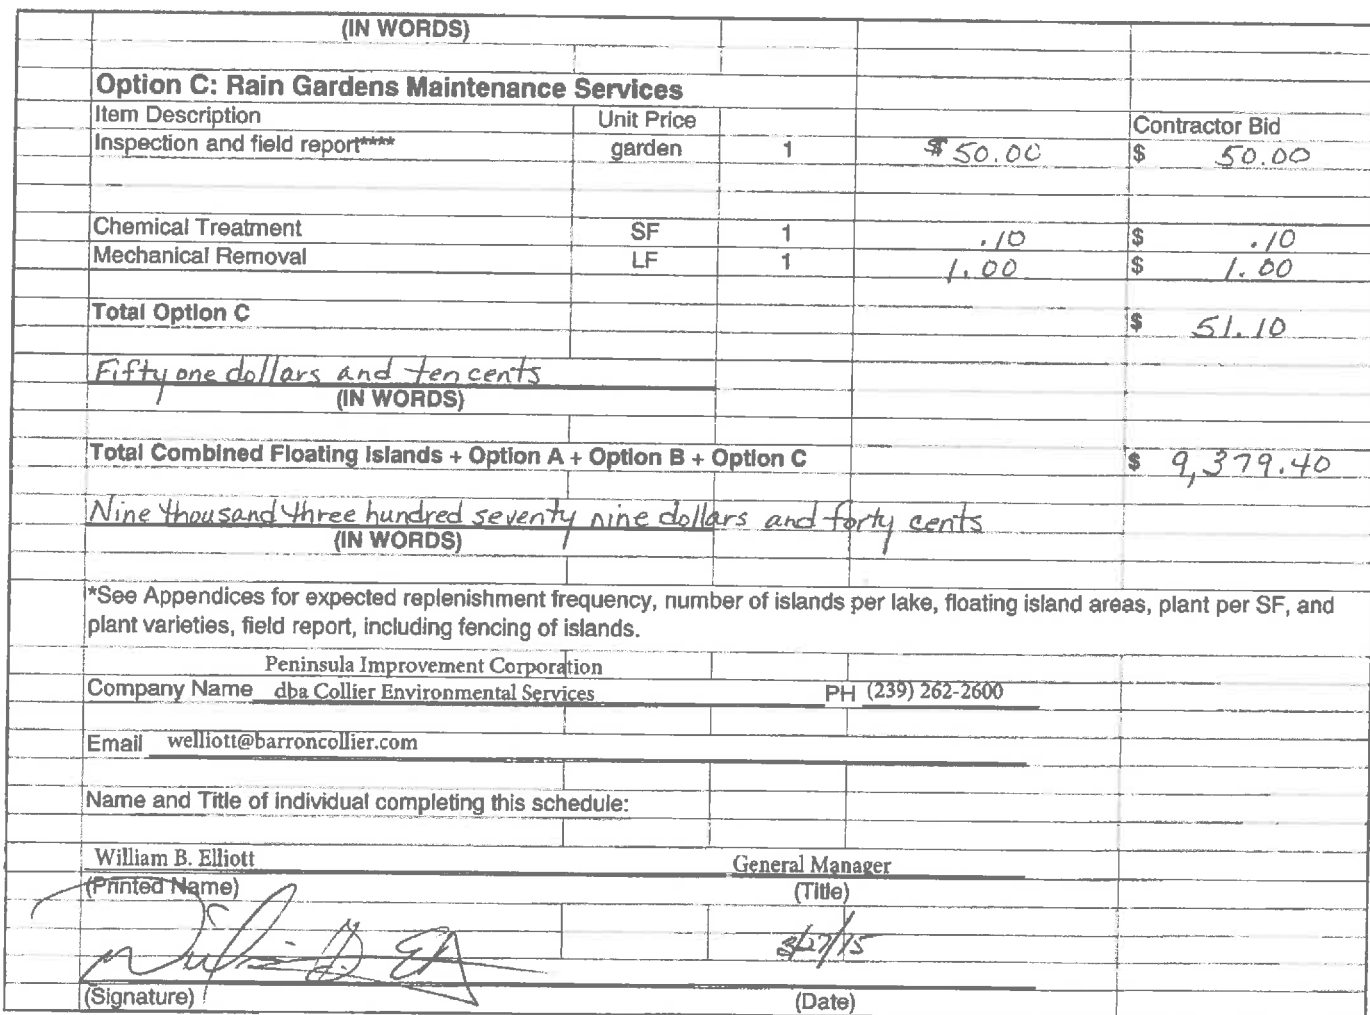 (IN WORDS)
Option C: Rain Gardens Maintenance Services
Item Description Unit Price Contractor Bid
Inspection and field report**** garden 1 $ 50.00 $ 50.00
Chemical Treatment SF 1 .10 $ .10
Mechanical Removal LF 1 1.00 $ 1.00
Total Option C $ 51.10
Fifty one dollars and ten cents
(IN WORDS)
Total Combined Floating Islands + Option A + Option B + Option C $ 9,379.40
Nine thousand three hundred seventy nine dollars and forty cents
(IN WORDS)
*See Appendices for expected replenishment frequency, number of islands per lake, floating island areas, plant per SF, and
plant varieties, field report, including fencing of islands.
Peninsula Improvement Corporation
Company Name dba Collier Environmental Services PH (239) 262-2600
Email welliott@barroncollier.com
Name and Title of individual completing this schedule:
William B. Elliott General Manager
(Printed Name) (Title)
3/27/15
(Signature) (Date)